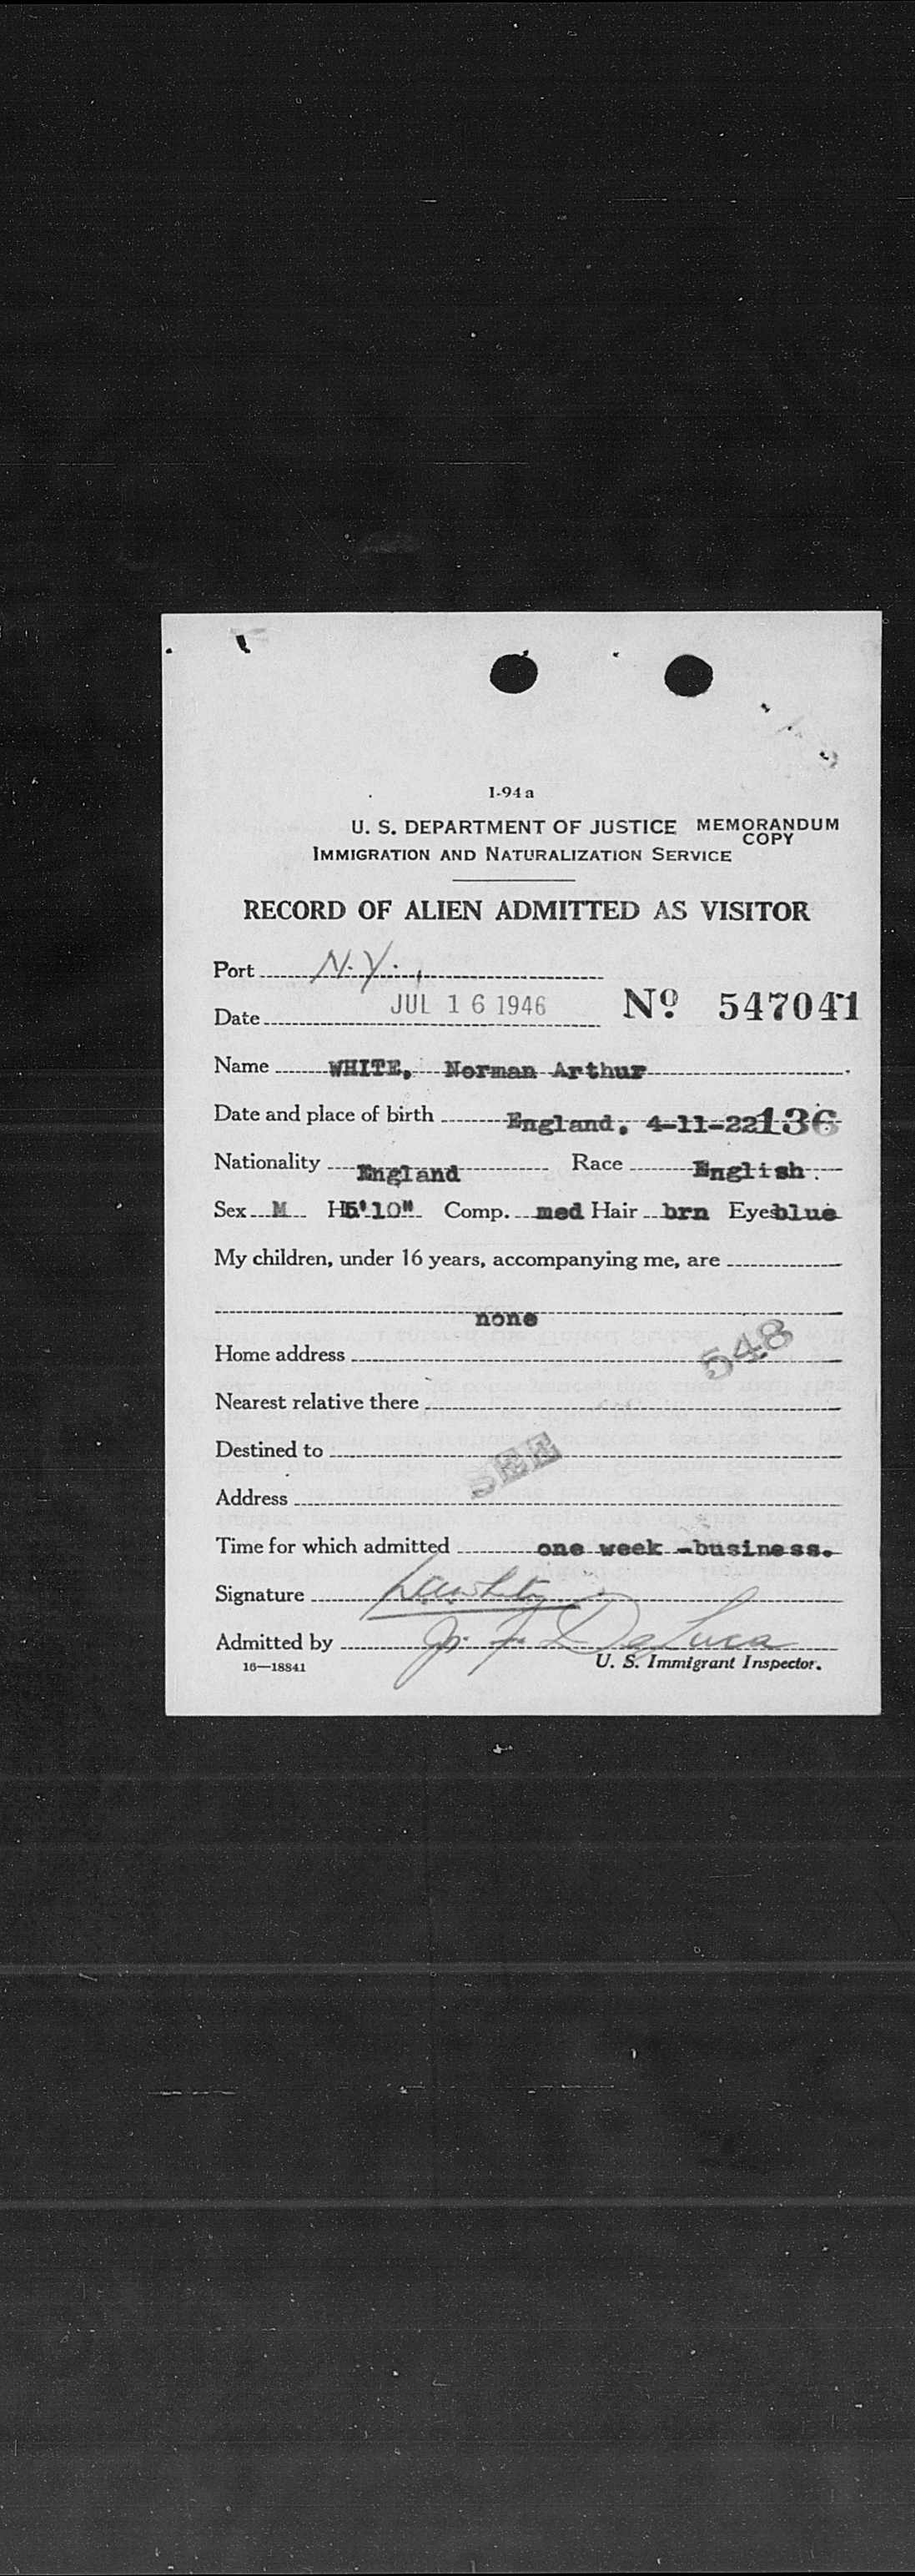 I-94a
U. S. DEPARTMENT OF JUSTICE MEMORANDUM COPY
IMMIGRATION AND NATURALIZATION SERVICE
RECORD OF ALIEN ADMITTED AS VISITOR
Port N.Y.
Date JUL 16 1946 No 547041
Name WHITE, Norman Arthur
Date and place of birth England, 4-11-22 136
Nationality England Race English
Sex M H 5'10" Comp. med Hair brn Eyes blue
My children, under 16 years, accompanying me, are
none
Home address 548
Nearest relative there
Destined to SEE
Address
Time for which admitted one week -business.
Signature
Admitted by J. F. DeLuca
16—18841 U. S. Immigrant Inspector.